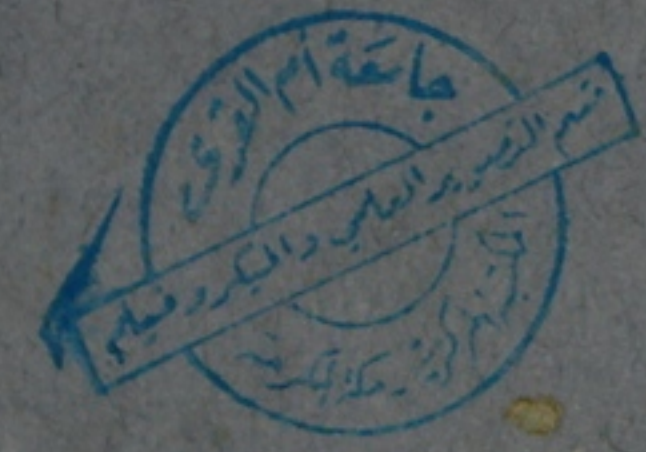 جامعة أم القرى
قسم التصوير العلمي والميكروفيلمي
مكة المكرمة